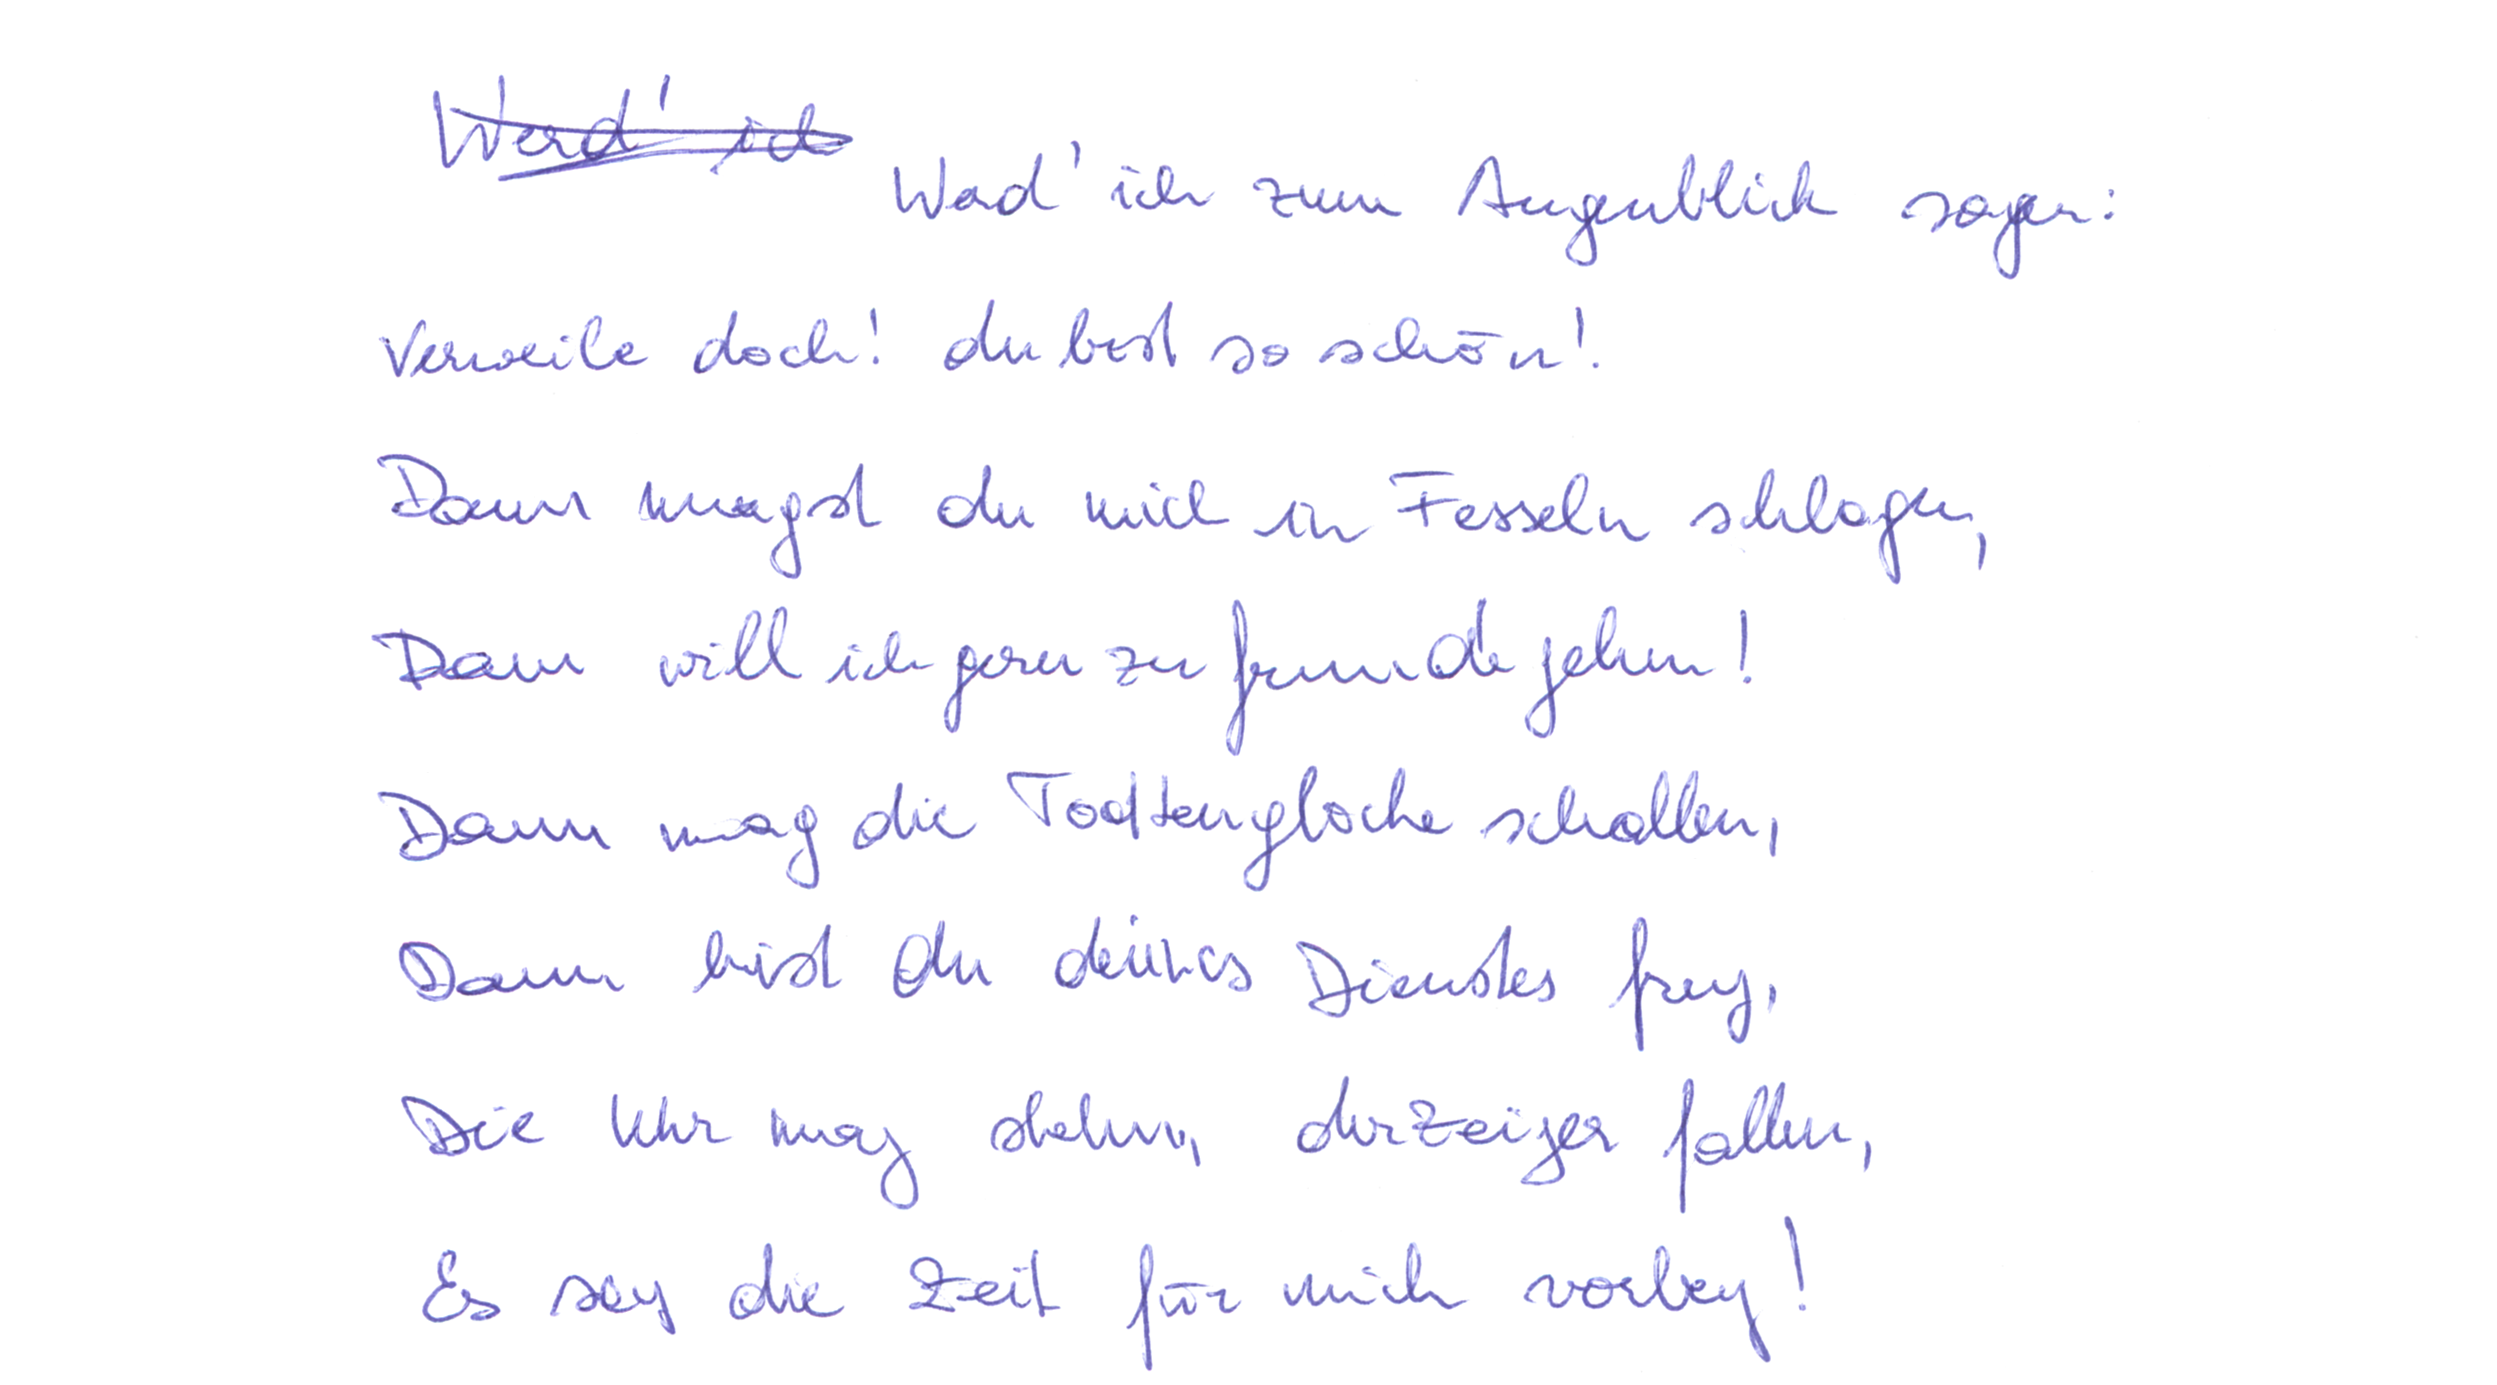 Werd' ich
Werd' ich zum Augenblick sagen:
Verweile doch! du bist so schön!
Dann magst du mich in Fesseln schlagen,
Dann will ich gern zu Grunde gehen!
Dann mag die Todtenglocke schallen,
Dann bist du deines Dienstes frey,
Die Uhr mag stehen, der Zeiger fallen,
Es sey die Zeit für mich vorbey!